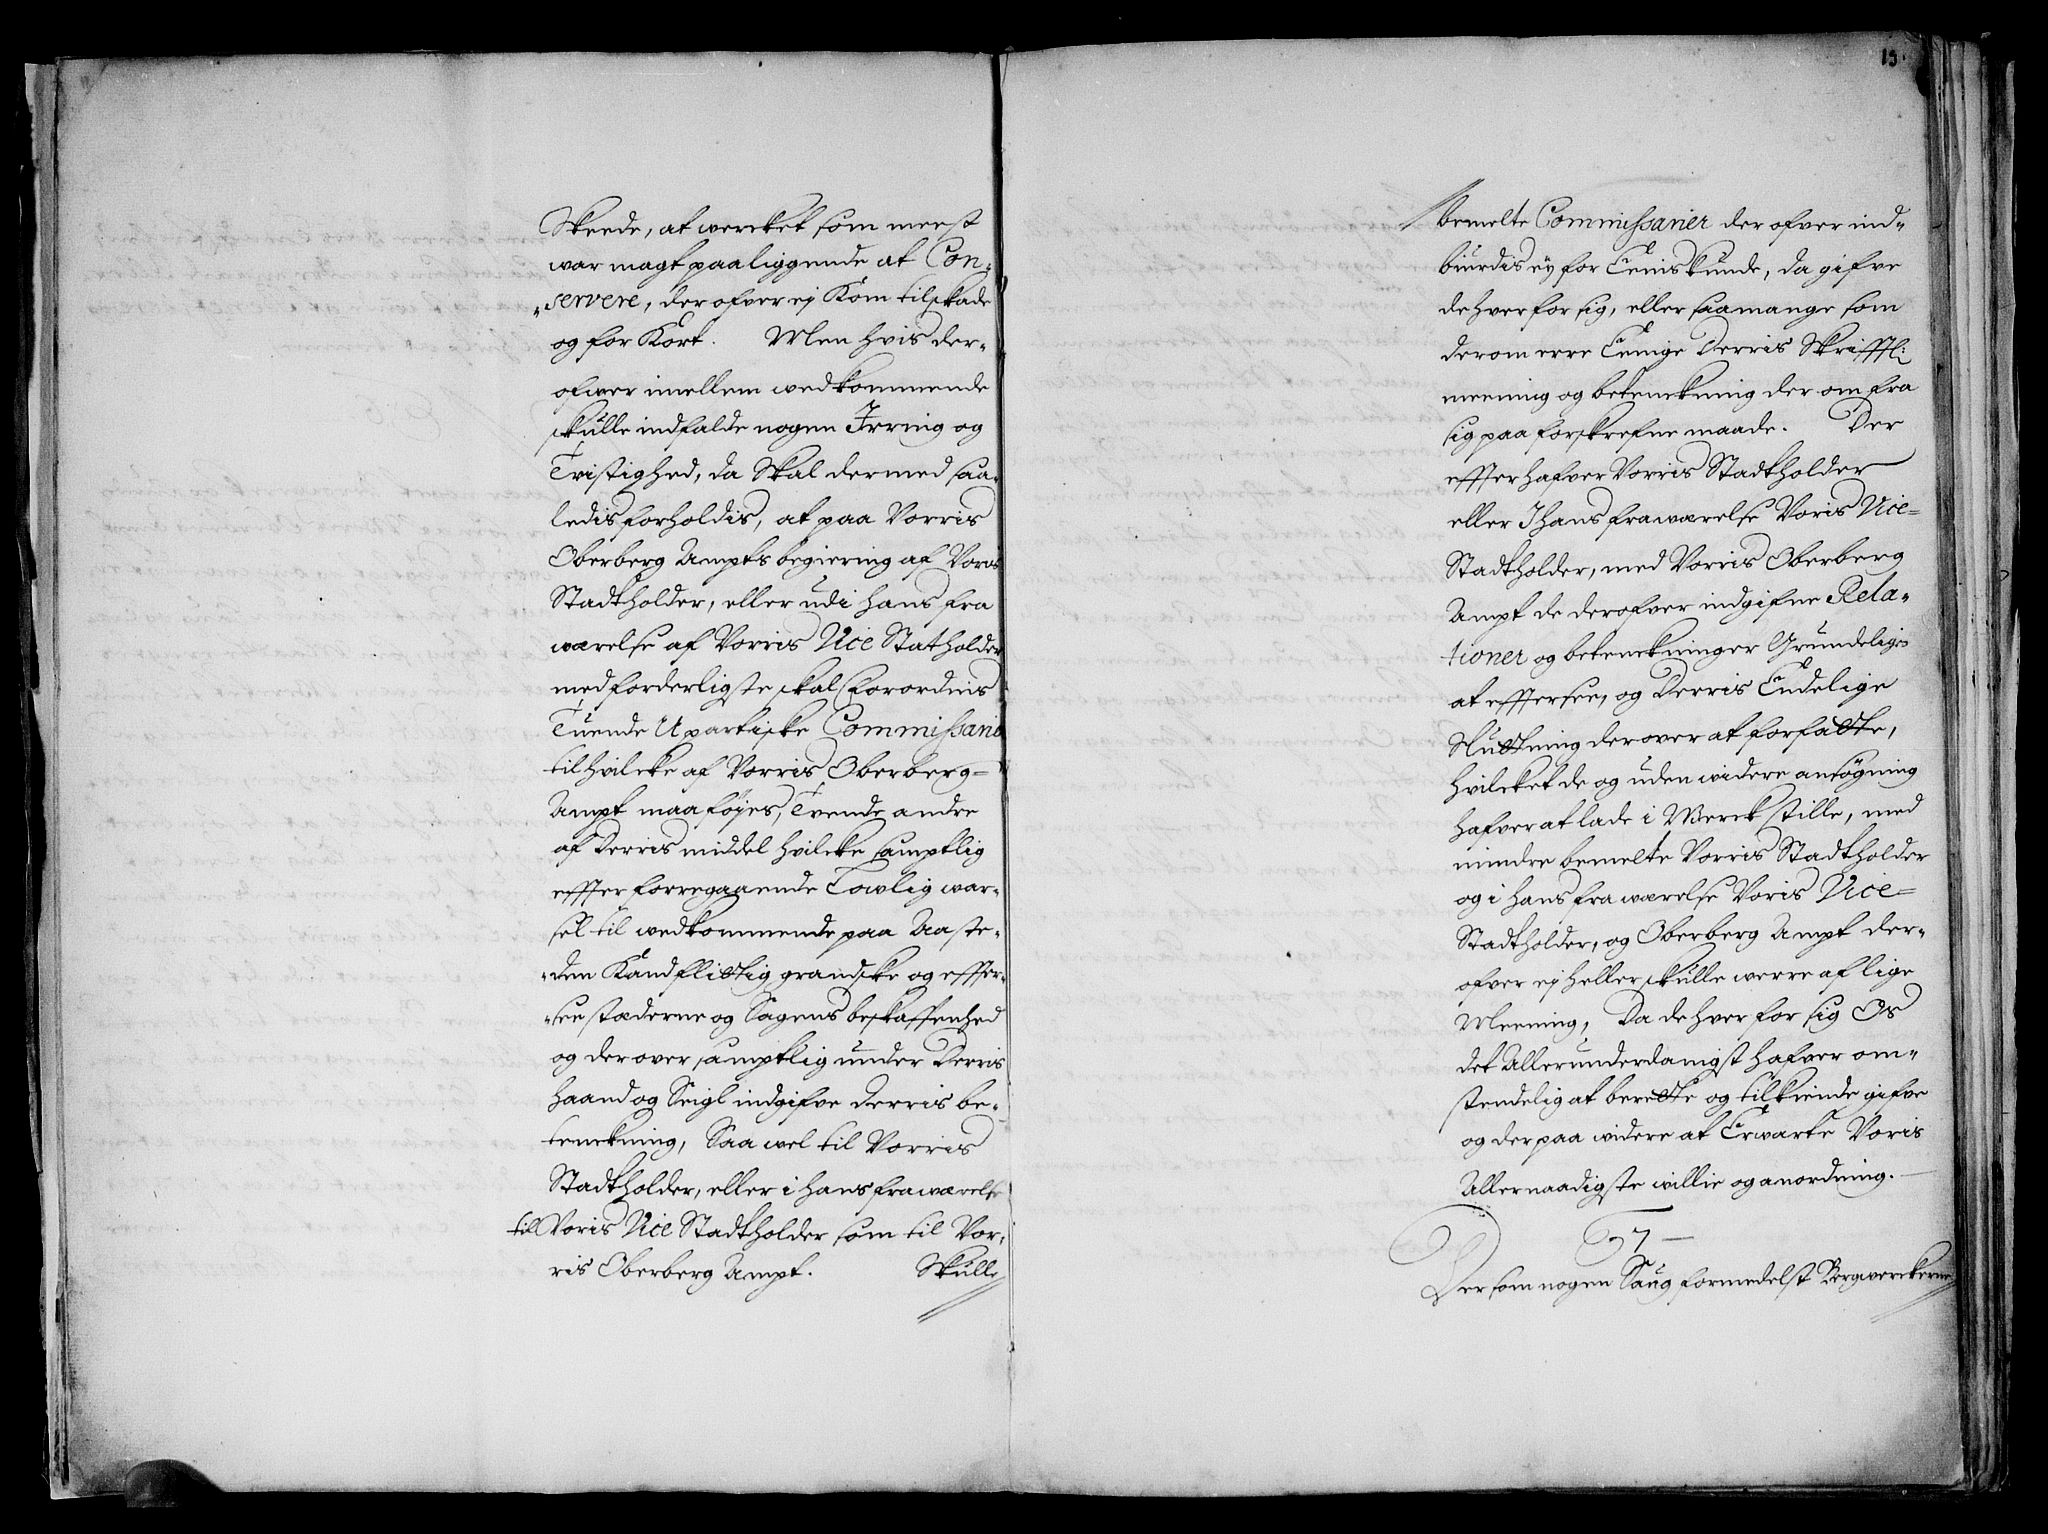 Skeede, at wercket som meest
war magt paaliggende at Con„
„servere, der ofver ej kom til skade
og for kort. Men hvis der„
ofwer imellem wedkommende
skulle indfalde nogen Irring og
Tvistighed, da Skal dermed saa„
ledis forholdis, at paa Vorris
Oberberg Ampts begiering af Voris
Stadtholder, eller udi hans fra
wærelse af Vorris Vice Statholder
med forderligste skal Forordnis
Tuende Upartiske Commissarier
til hvilcke af Vorris Oberberg=
Ampt maa føyes, Tvende andre
af Derris middel hvilcke samptlig
effter forregaaende Lowlig war„
sel til wedkommende paa Aaste„
„den Kand flittig grandske og effter„
„see stæderne og Sagens beskaffenhed
og der over samptlig under Derris
haand og Seigl indgifve derris be„
tenckning, Saa wel til Vorris
Stadtholder, eller i hans frawærelse
till Voris Vice Stadtholder som til Vor„
ris Oberberg Ampt. Skulle
15.
bemelte Commissarier der ofver ind„
biurdis ey for Eenis kunde, da gifve
de hver for sig, eller saamange som
derom erre Eenige Derris Skrifftl:
meening og betenckning der om fra
sig paa forskrefne maade. Der
effter hafver Vorris Stadtholder
eller I hans frawærelse Voris Vice=
Stadtholder, med Vorris Oberberg
Ampt de derofver indgifne Rela„
tioner og betenckninger Grundelig
at efftersee, og Derris Endelige
Sluttning der over at forfatte,
hvilcket de og uden widere ansøgning
hafver at lade i Werck stille, med
mindre bemelte Vorris Stadtholder
og i hans fra wærelse Voris Vice=
Stadtholder, og Oberberg Ampt der„
ofver ej heller skulle werre af lige
Meening, Da de hver for sig Os
det Allerunderdanigst hafver om„
stendelig at berette og tilkiende gifve
og der paa widere at Erwarte Voris
Allernaadigste willie og anordning.
7
Der som nogen Saug formedelst Bergwerckerne